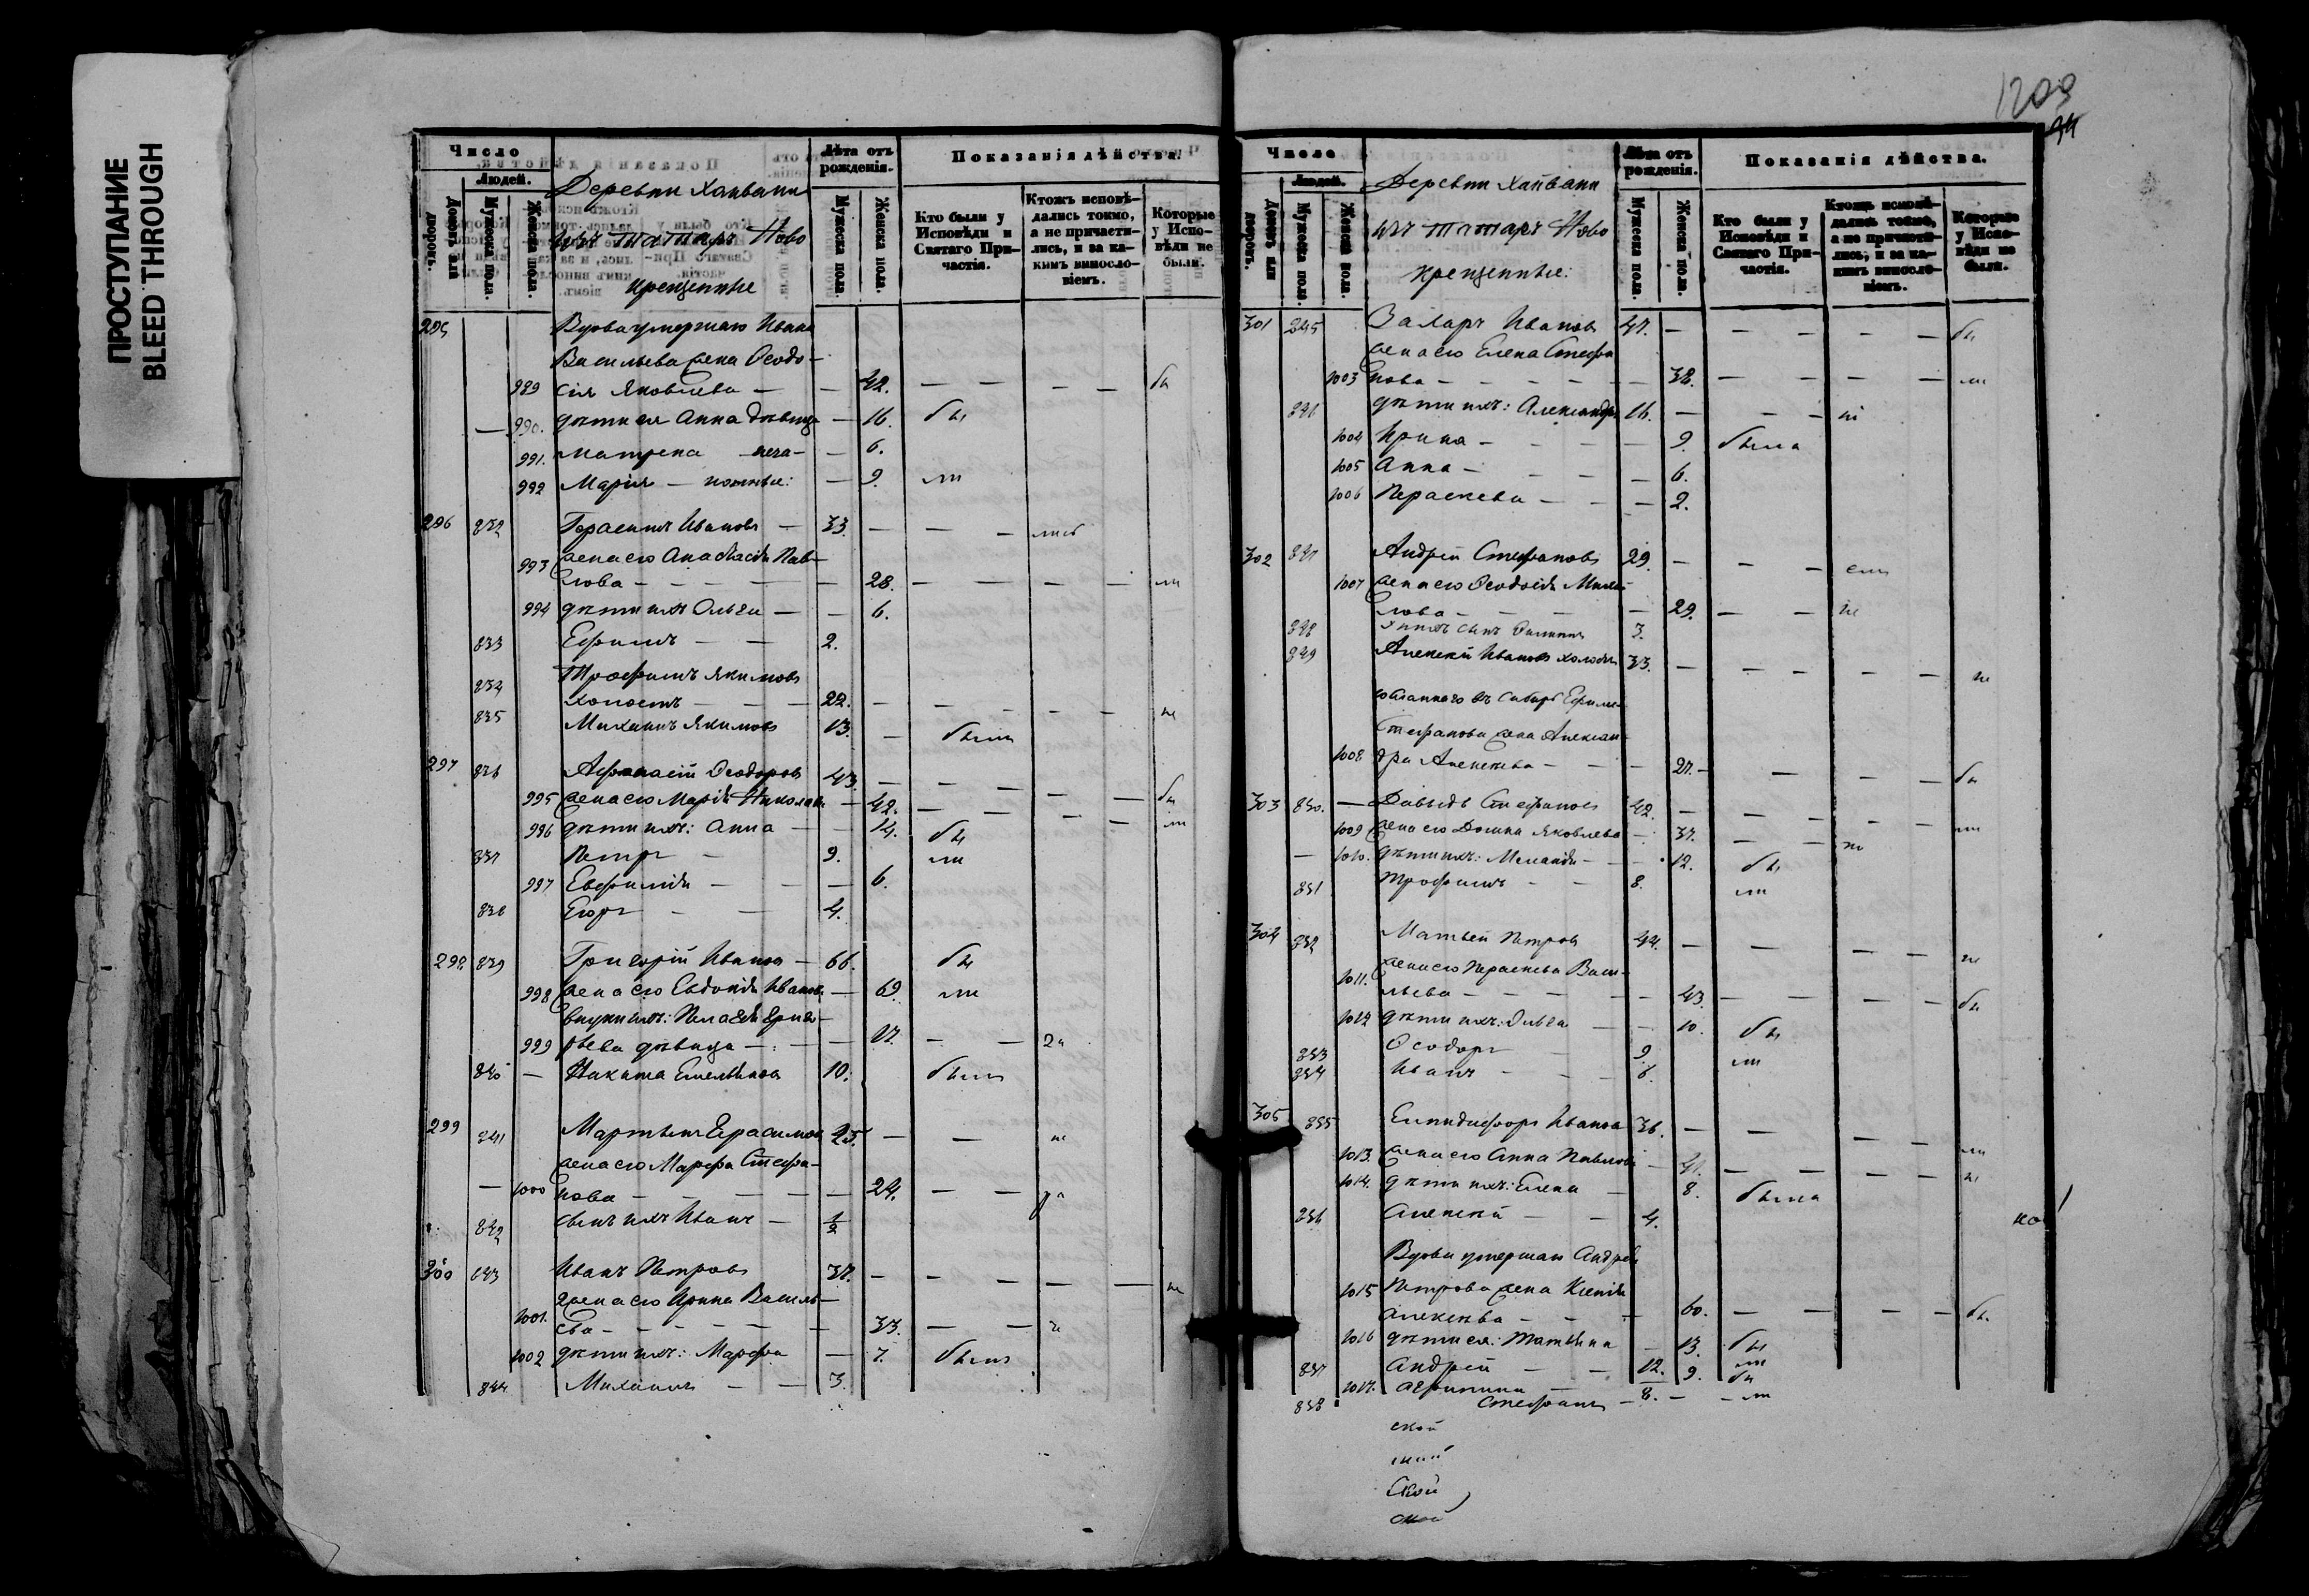 ПРОСТУПАНИЕ
BLEED THROUGH
Число
Людей.
Домовъ или дворовъ.
Мужеска пола.
Женска пола.
Деревни Хайвани
изъ татаръ Ново
крещенные
Лѣта отъ рожденія.
Мужеска пола.
Женска пола.
Показанія дѣйства.
Кто были у Исповѣди и Святаго Причастія.
Ктожъ исповѣдались токмо, а не причастились, и за какимъ винословіемъ.
Которые у Исповѣди не были.
295 Вдова умершаго Ивана
Васильева жена Ѳеодо-
989 сія Яковлева — — 42. — — — — бы
— 990. дѣти ея Анна дѣвица — 16. бы
991. Матрена — — 6.
992 Марія — — 9. ли
296 832 Герасимъ Ивановъ — 33. — — —
993 жена его Анастасія Пав-
лова — — — — — 28. — — — — ли
994 дѣти ихъ Ольга — — 6.
833 Ефимъ — — 2.
834 Трофимъ Якимовъ
холостъ — — — 22. — — — — — не
835 Михаилъ Якимовъ 13. — были
297 836 Афанасій Ѳеодоровъ 43. — — — — бы
995 жена его Марія Николаева — 42. — — — — ли
996 дѣти ихъ: Анна — — 14. бы
837 Петръ — 9. ли
997 Евфимія — — — 6.
838 Егоръ — — 4.
298. 839 Григорій Ивановъ — 66. бы
998 жена его Евдокія Иванова — 69. ли
внуки ихъ: Пелагія Григо-
999 рьева дѣвица — — 17. — —
840 — Никита Емельяновъ 10. были
299 841 Мартынъ Герасимовъ 25. — — не
жена его Марфа Стефа-
— 1000 нова — — — — — 24. — —
842 сынъ ихъ Иванъ — 1/2
300 843 Иванъ Петровъ 37. — — — — — не
жена его Ирина Василь-
1001. ева — — — — — — 33. — —
1002 дѣти ихъ: Марфа — 7. были
844 Михаилъ — — 3.
1209
94
Число
Людей.
Домовъ или дворовъ.
Мужеска пола.
Женска пола.
Деревни Хайвани
изъ татаръ Ново
крещенные:
Лѣта отъ рожденія.
Мужеска пола.
Женска пола.
Показанія дѣйства.
Кто были у Исповѣди и Святаго Причастія.
Ктожъ исповѣдались токмо, а не причастились, и за какимъ винословіемъ.
Которые у Исповѣди не были.
301 845 Захаръ Ивановъ 47. — — — — — бы
жена его Елена Стефа
1003 нова — — — — — — 38. — — — — ли
846 дѣти ихъ: Александръ 16. — — —
1004 Ирина — — — — 9. была
1005 Анна — — — — 6.
1006 Параскева — — — 2.
302 847 Андрей Стефановъ 29. — — —
1007 жена его Ѳеодосія Михай-
лова — — — — — 29. — — не
848 У нихъ сынъ Филиппъ 3.
849 Алексѣй Ивановъ холостъ 33. — — — — — не
сосланнаго въ Сибирь Ефима
Стефанова жена Алексан-
1008 дра Алексѣева — — — 27. — — — — бы
303 850. — Давыдъ Стефановъ 42. — — — — — ли
1009 жена его Домна Яковлева — 37. — — не
— 1010. дѣти ихъ: Меланія — — 12. бы
851 Трофимъ — — 8. ли
304 852 Матвей Петровъ 44. — — — — не
жена его Параскева Васи-
1011. льева — — — — — 43. — — — — бы
1012 дѣти ихъ: Ольга — — 10. бы
853 Ѳеодоръ — 9. ли
854 Иванъ — — — 6.
305 855 Елпидифоръ Ивановъ 36. — — — — ли
1013. жена его Анна Павлова — 41. — — — — не
1014. дѣти ихъ: Елена — 8. была
856 Алексѣй — — 4.
Вдова умершаго Андрея
1015 Петрова жена Ксенія
Алексѣева — — — 60. — — — — бы.
1016 дѣти ея: Татьяна — 13. бы
857 Андрей — — 12. ли
1017. Агрипина — 9. бы
858 Стефанъ — 8. — — ли
ской
ской
ской